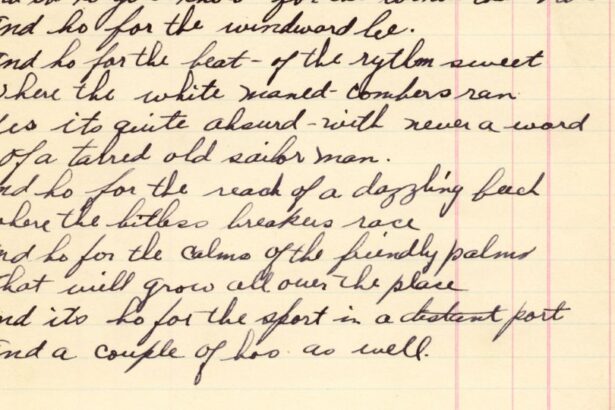 nd ho for the windward lee.
nd ho for the beat - of the rythm sweet
where the white maned - combers ran
es its quite absurd - with never a word
of a tarred old sailor man.
nd ho for the reach of a dazzling beech
where the bitless breakers race
nd ho for the calms of the friendly palms
that will grow all over the place
nd its ho for the sport in a distant port
and a couple of hos as well.